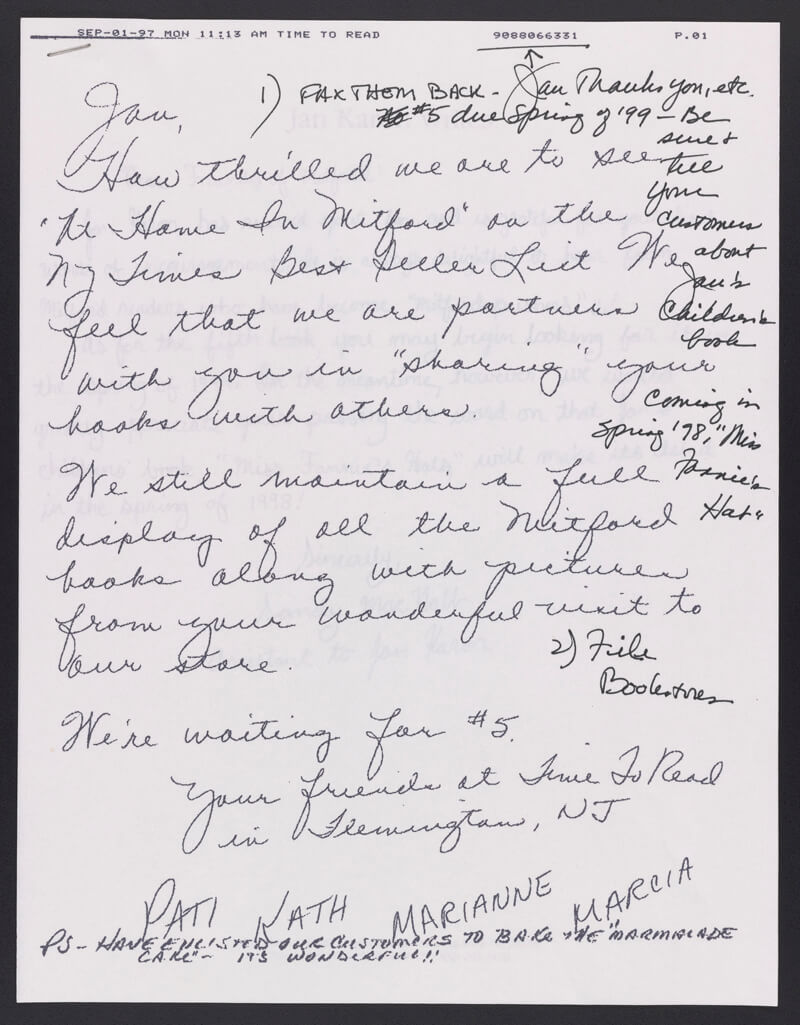 SEP-01-97 MON 11:13 AM TIME TO READ 9088066331 P.01
1) FAX THEM BACK - Jan Thanks you, etc.
#5 due Spring of '99 - Be
sure &
tell
your
customers
about
Jan's
Children's
book
coming in
Spring '98, "Miss
Fannie's
Hat"
Jan,
How thrilled we are to see
"At Home In Mitford" on the
NY Times Best Seller List We
feel that we are partners
with you in "sharing" your
books with others.
We still maintain a full
display of all the Mitford
books along with pictures
from your wonderful visit to
our store.
2) File
Bookstores
We're waiting for #5.
Your friends at Time To Read
in Flemington, NJ
PATI KATH MARIANNE MARCIA
PS - HAVE ENLISTED OUR CUSTOMERS TO BAKE THE "MARMALADE
CAKE" - IT'S WONDERFUL!!